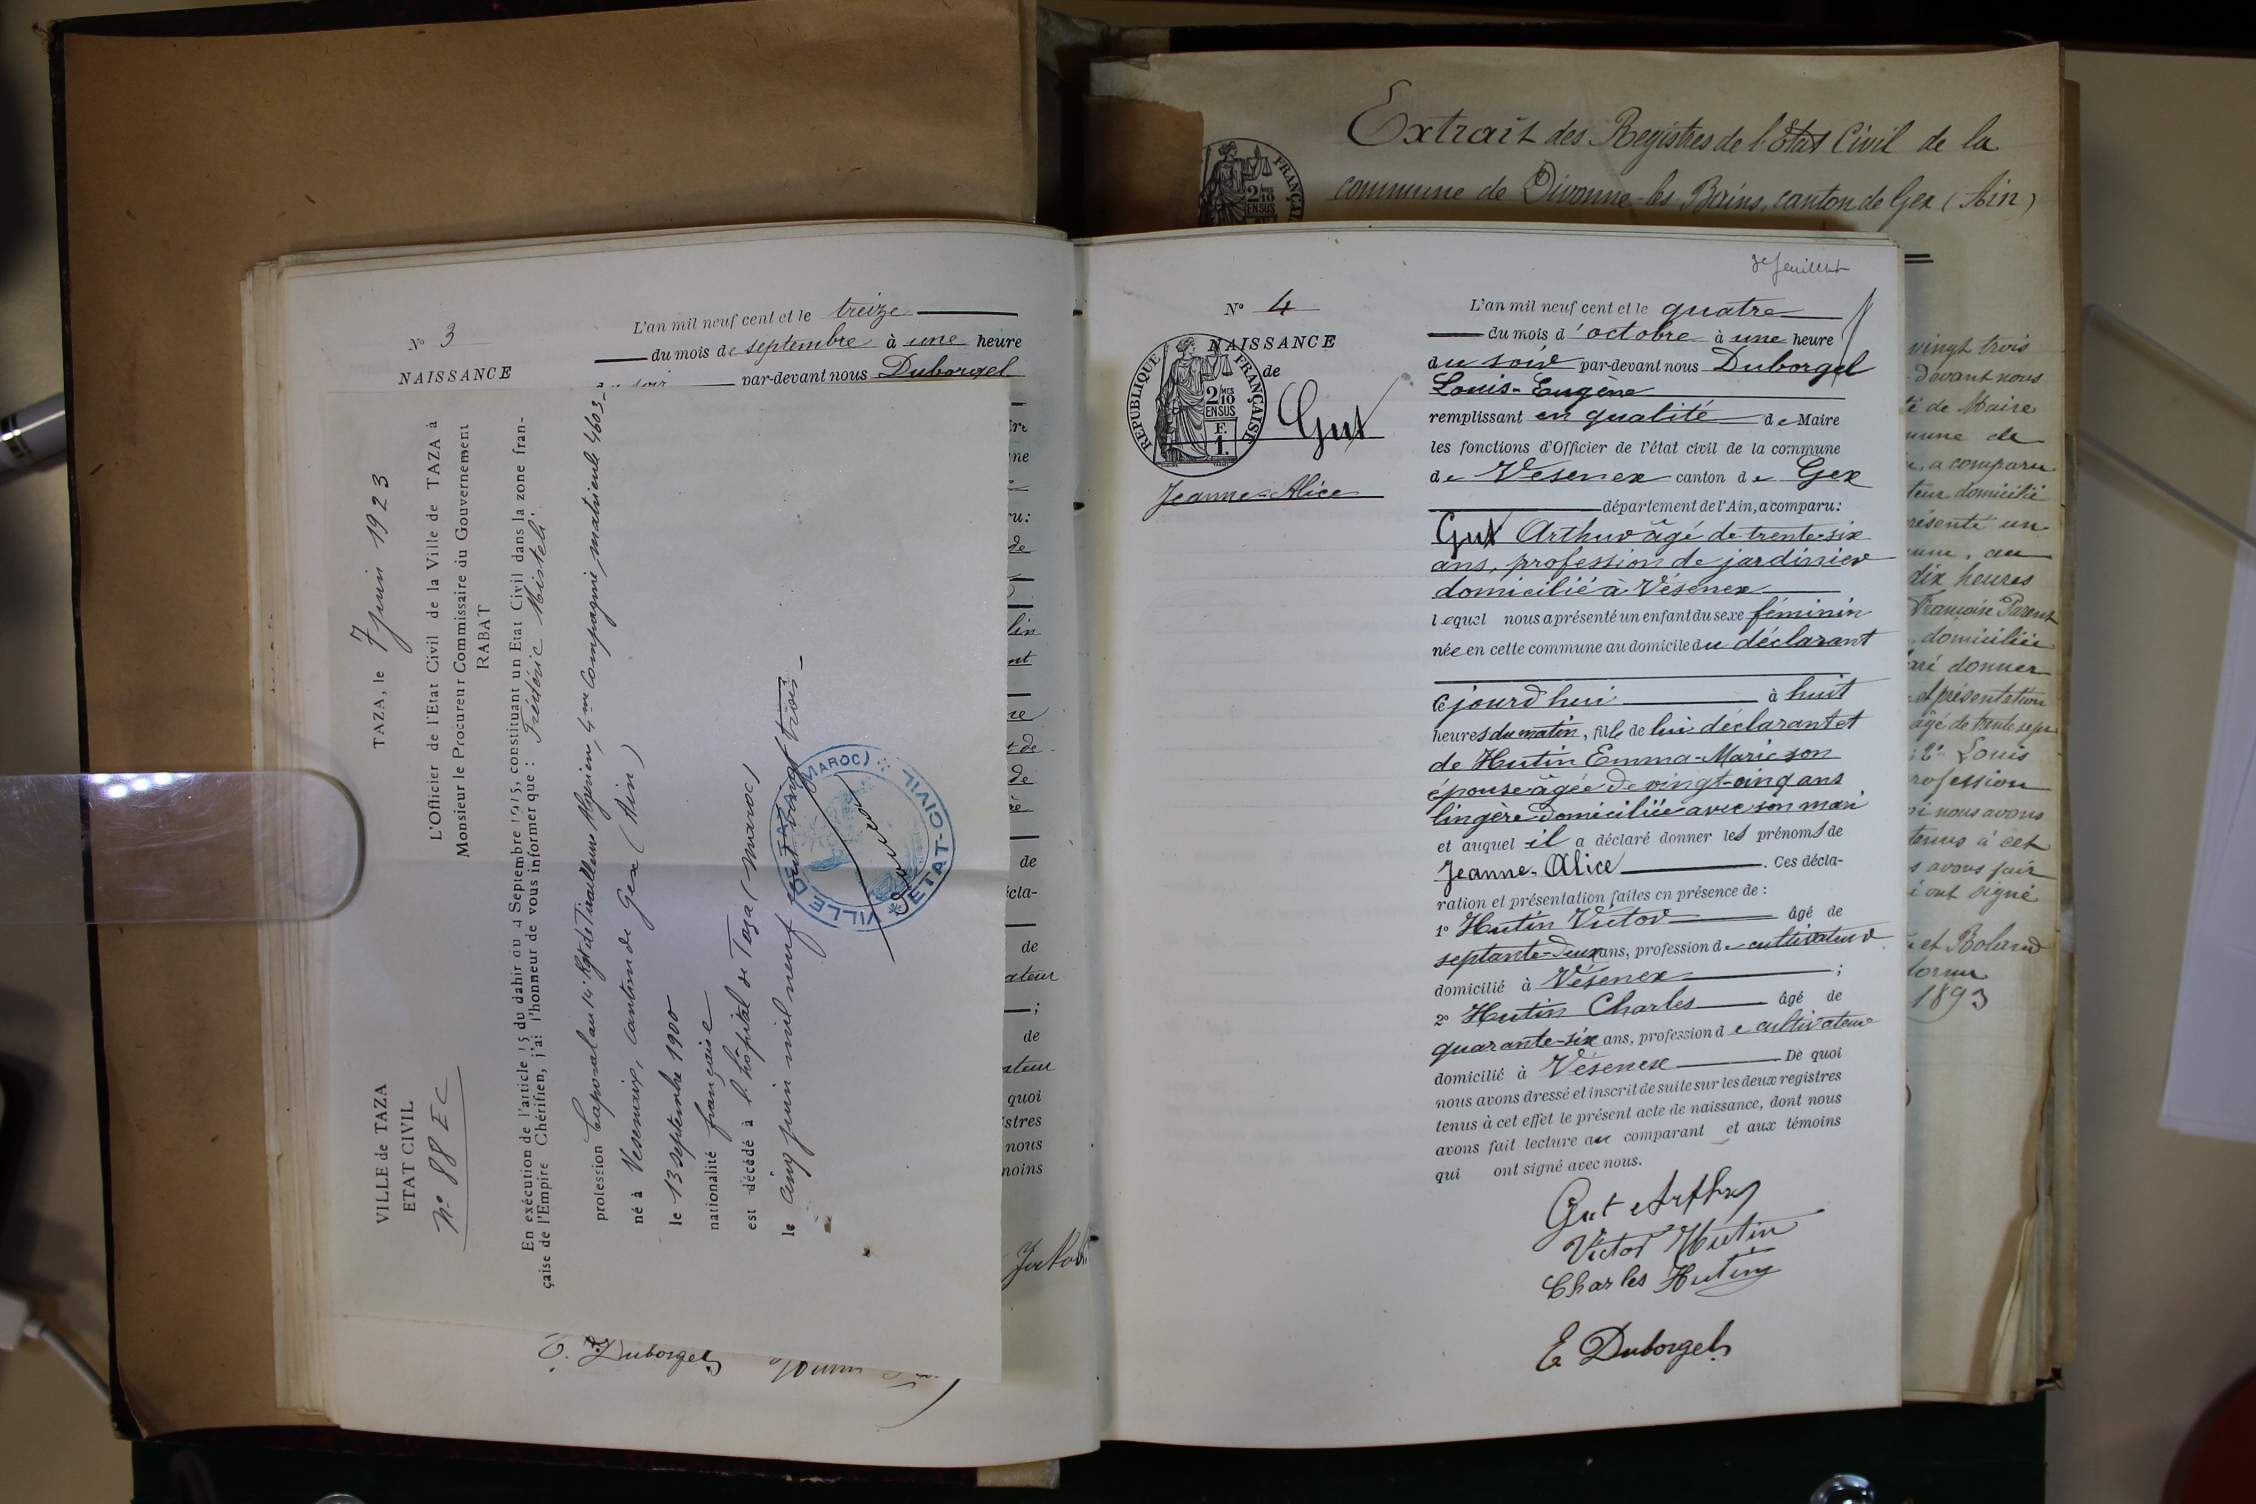 Extrait des Registres de l'Etat Civil de la
commune de Divonne-les Bains, canton de Gex (Ain)
N° 3
NAISSANCE
L'an mil neuf cent et le treize
du mois de septembre à une heure
du soir par-devant nous Duborgel
VILLE de TAZA
ETAT CIVIL
N° 88 EC
TAZA, le 7 juin 1923
L'Officier de l'Etat Civil de la Ville de TAZA à
Monsieur le Procureur Commissaire du Gouvernement
RABAT
En exécution de l'article 15 du dahir du 4 Septembre 1915, constituant un Etat Civil dans la zone fran-
çaise de l'Empire Chérifien, j'ai l'honneur de vous informer que : Frédéric Misteli
profession Caporal au 14e Rgt de Tirailleurs Algériens, 4me Compagnie, matricule 4603
né à Vesenaix, canton de Gex (Ain)
le 13 septembre 1900
nationalité française
est décédé à l'hôpital de Taza (Maroc)
le cinq juin mil neuf cent vingt trois
VILLE DE TAZA (MAROC)
* ETAT-CIVIL *
E. Duborgel
3e feuillet
N° 4
NAISSANCE
de
Gut
Jeanne-Alice
RÉPUBLIQUE FRANÇAISE
2/10 MES
EN SUS
F.
1.
L'an mil neuf cent et le quatre
du mois d'octobre à une heure
du soir par-devant nous Duborgel
Louis-Eugène
remplissant en qualité de Maire
les fonctions d'Officier de l'état civil de la commune
de Vésenex canton de Gex
département de l'Ain, a comparu:
Gut Arthur âgé de trente-six
ans, profession de jardinier
domicilié à Vésenex
lequel nous a présenté un enfant du sexe féminin
née en cette commune au domicile du déclarant
cejourd'hui à huit
heures du matin, fille de lui déclarant et
de Hutin Emma-Marie son
épouse âgée de vingt-cinq ans
lingère domiciliée avec son mari
et auquel il a déclaré donner les prénoms de
Jeanne-Alice. Ces décla-
ration et présentation faites en présence de :
1° Hutin Victor âgé de
septante-deux ans, profession de cultivateur
domicilié à Vésenex ;
2° Hutin Charles âgé de
quarante-six ans, profession de cultivateur
domicilié à Vésenex De quoi
nous avons dressé et inscrit de suite sur les deux registres
tenus à cet effet le présent acte de naissance, dont nous
avons fait lecture au comparant et aux témoins
qui ont signé avec nous.
Gut Arthur
Victor Hutin
Charles Hutin
E. Duborgel
vingt trois
devant nous
de Maire
de
a comparu
domicilié
un
au
dix heures
Françoise Parent
domiciliée
donner
et présentation
âgé de trente sept
2° Louis
profession
nous avons
tenus à cet
avons fait
ont signé
et Roland
1893